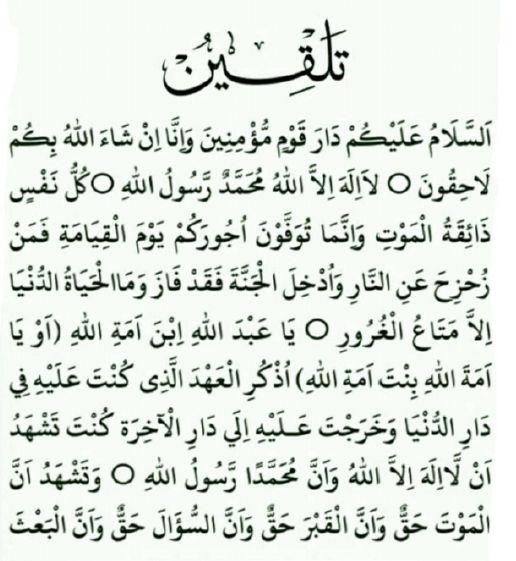 تَلْقِيْنُ
اَلسَّلَامُ عَلَيْكُمْ دَارَ قَوْمٍ مُّؤْمِنِينَ وَاِنَّا اِنْ شَاءَ اللهُ بِكُمْ
لَاحِقُونَ ○ لَااِلَهَ اِلاَّ اللهُ مُحَمَّدٌ رَّسُولُ اللهِ ○كُلُّ نَفْسٍ
ذَائِقَةُ الْمَوْتِ وَاِنَّمَا تُوَفَّوْنَ اُجُورَكُمْ يَوْمَ الْقِيَامَةِ فَمَنْ
زُحْزِحَ عَنِ النَّارِ وَاُدْخِلَ الْجَنَّةَ فَقَدْ فَازَ وَمَاالْحَيَاةُ الدُّنْيَا
اِلاَّ مَتَاعُ الْغُرُورِ ○ يَا عَبْدَ اللهِ اِبْنَ اَمَةِ اللهِ (اَوْ يَا
اَمَةَ اللهِ بِنْتَ اَمَةِ اللهِ) اُذْكُرِ الْعَهْدَ الَّذِى كُنْتَ عَلَيْهِ فِي
دَارِ الدُّنْيَا وَخَرَجْتَ عَلَيْهِ اِلَي دَارِ الْآخِرَة كُنْتَ تَشْهَدُ
اَنْ لَّااِلَهَ اِلاَّ اللهُ وَاَنَّ مُحَمَّدًا رَّسُولُ اللهِ ○ وَتَشْهَدُ اَنَّ
الْمَوْتَ حَقٌّ وَاَنَّ الْقَبْرَ حَقٌّ وَاَنَّ السُّؤَالَ حَقٌّ وَاَنَّ الْبَعْثَ